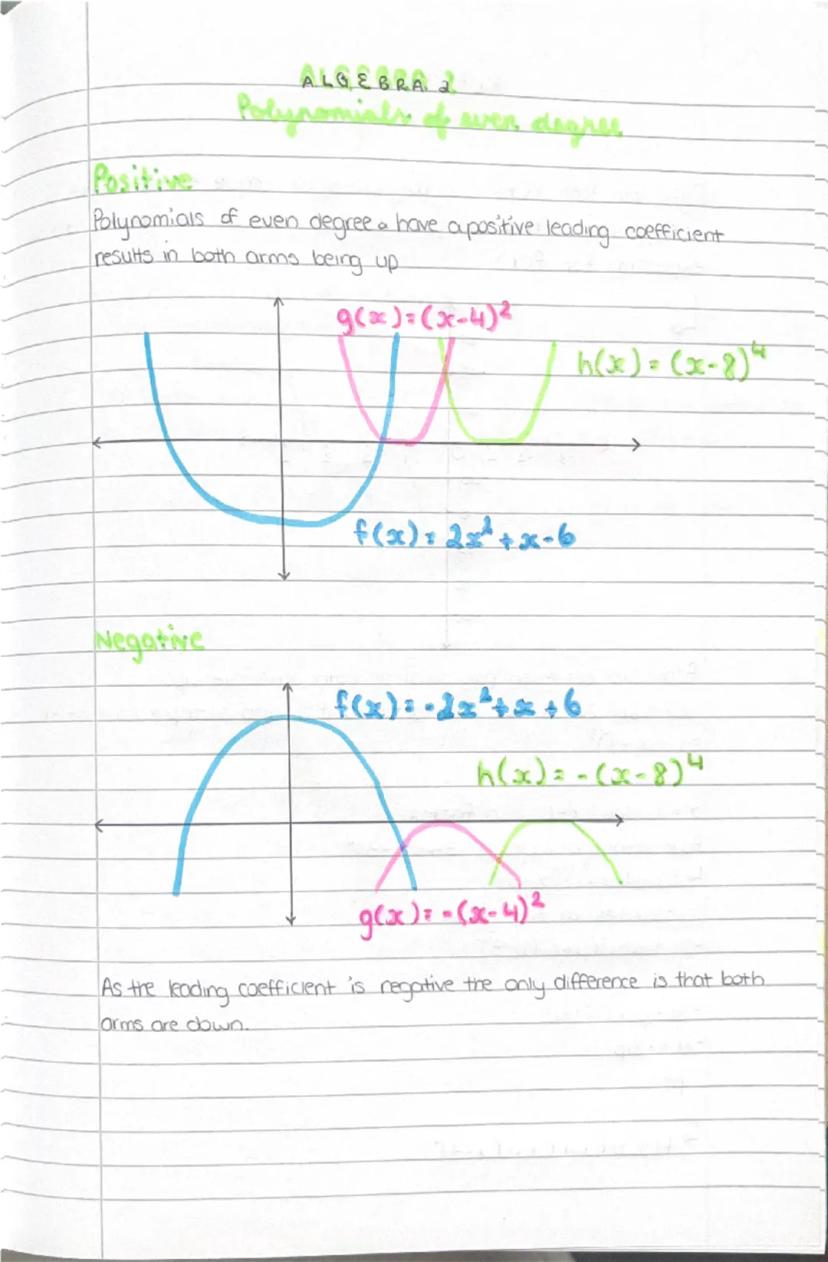 ALGEBRA 2
Polynomials of even degree
Positive
Polynomials of even degree a have a positive leading coefficient
results in both arms being up
g(x)=(x-4)²
h(x) = (x-8)⁴
f(x) = 2x²+x-6
Negative
f(x) = -2x²+x+6
h(x) = -(x-8)⁴
g(x) = -(x-4)²
As the leading coefficient is negative the only difference is that both
arms are down.